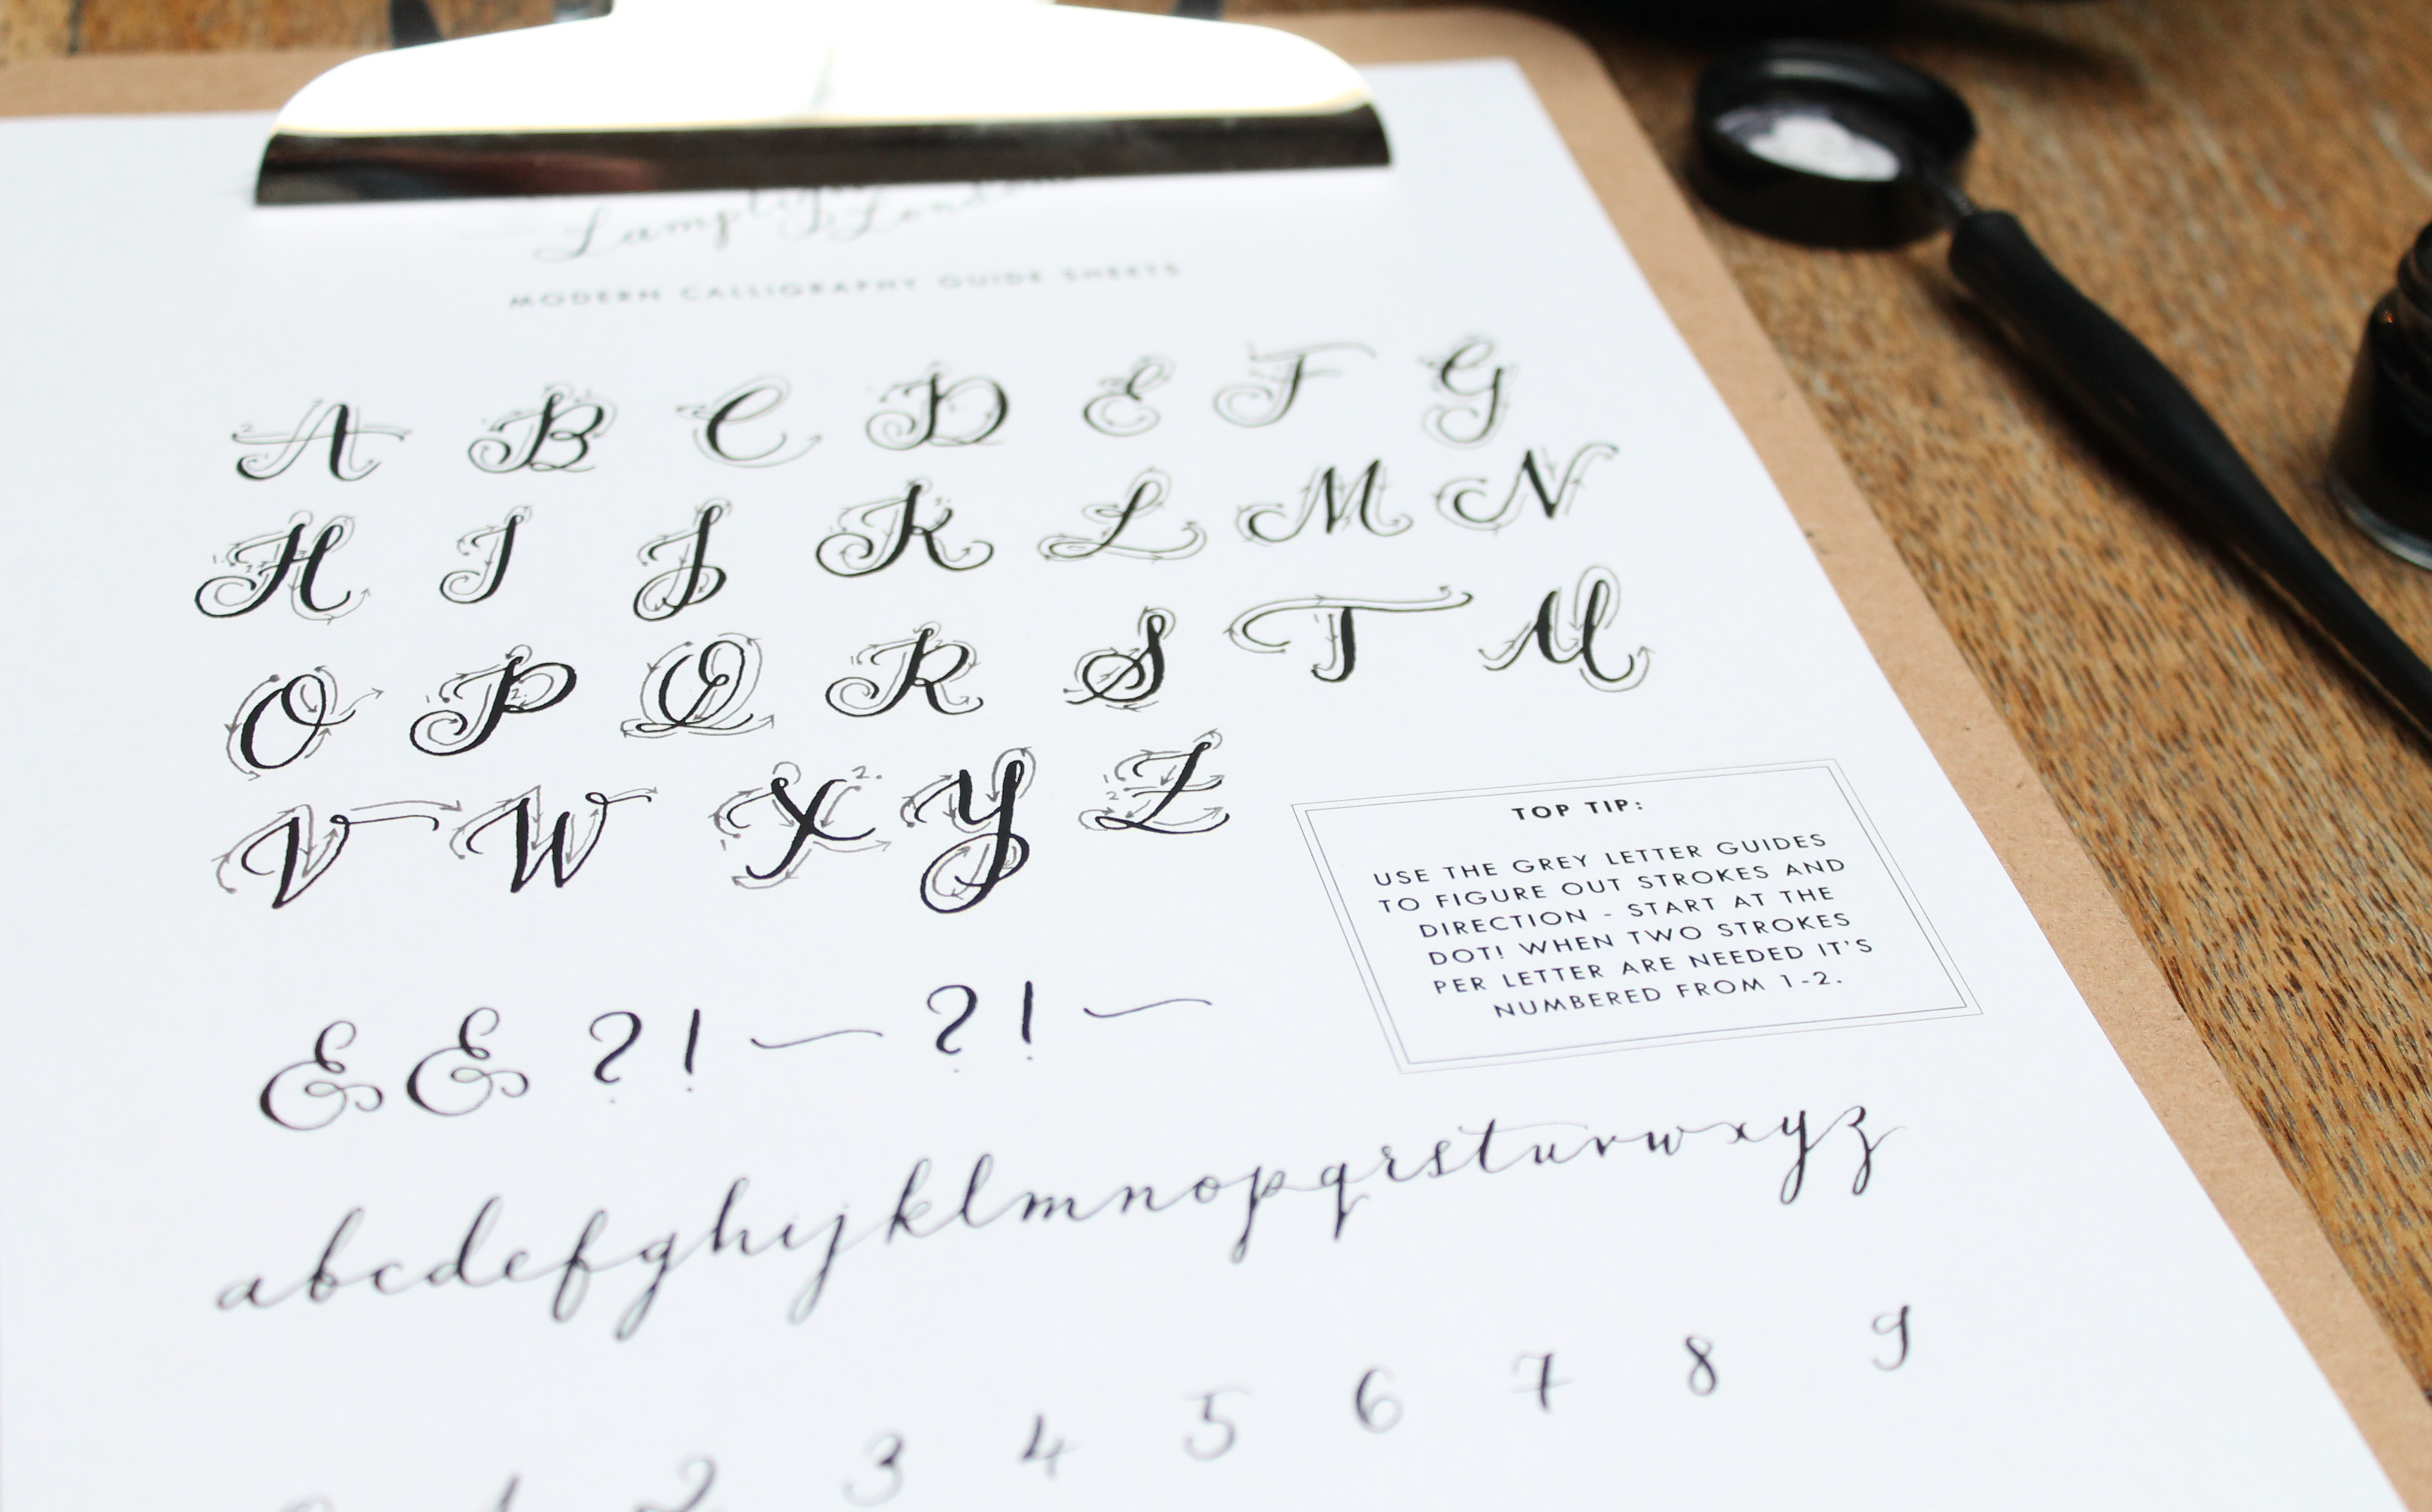 Lamplighter London
MODERN CALLIGRAPHY GUIDE SHEETS
A B C D E F G
H I J K L M N
O P Q R S T U
V W X Y Z
TOP TIP:
USE THE GREY LETTER GUIDES
TO FIGURE OUT STROKES AND
DIRECTION - START AT THE
DOT! WHEN TWO STROKES
PER LETTER ARE NEEDED IT'S
NUMBERED FROM 1-2.
& & ? ! — ? ! —
abcdefghijklmnopqrstuvwxyz
0 1 2 3 4 5 6 7 8 9